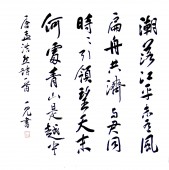 潮落江平未有風
扁舟共濟与君同
時時引領望天末
何處青山是越中
唐孟浩然詩一首